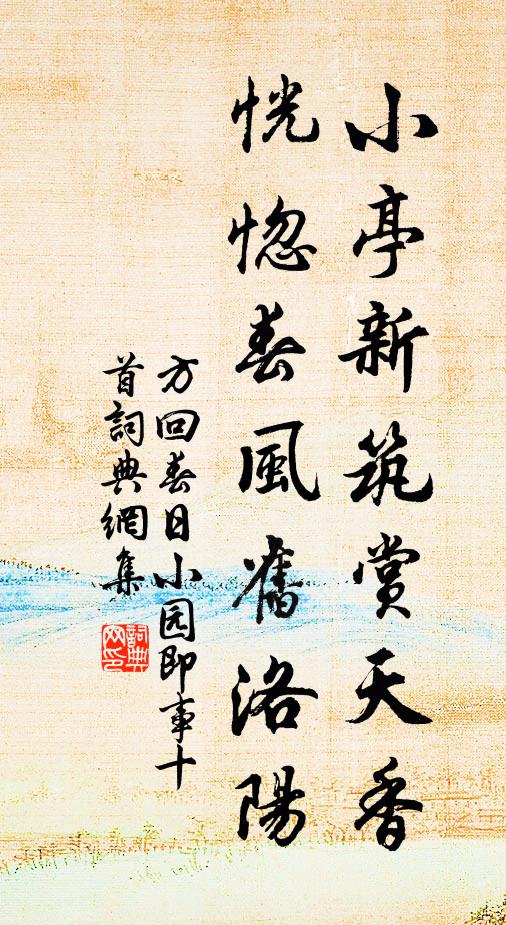 小亭新筑赏天香
恍惚春風舊洛陽
方回春日小园即事十
首詞典網集
詞典
网印